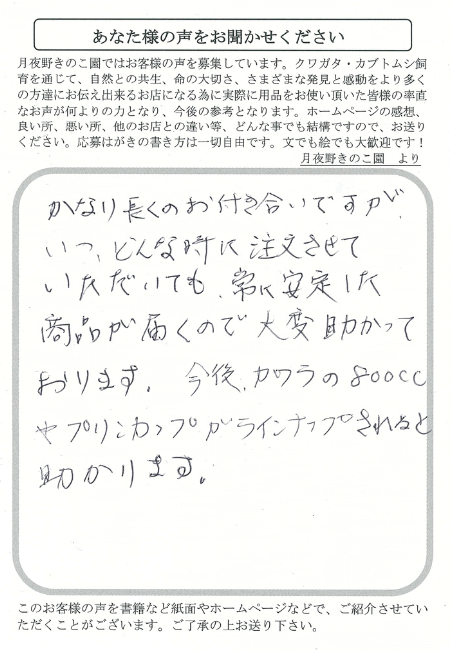 あなた様の声をお聞かせください
月夜野きのこ園ではお客様の声を募集しています。クワガタ・カブトムシ飼
育を通じて、自然との共生、命の大切さ、さまざまな発見と感動をより多く
の方達にお伝え出来るお店になる為に実際に用品をお使い頂いた皆様の率直
なお声が何よりの力となり、今後の参考となります。ホームページの感想、
良い所、悪い所、他のお店との違い等、どんな事でも結構ですので、お送り
ください。応募はがきの書き方は一切自由です。文でも絵でも大歓迎です！
月夜野きのこ園　より
かなり長くのお付き合いですが、
いつ、どんな時に注文させて
いただいても、常に安定した
商品が届くので大変助かって
おります。今後、カワラの800cc
やプリンカップがラインナップされると
助かります。
このお客様の声を書籍など紙面やホームページなどで、ご紹介させてい
ただくことがございます。ご了承の上お送り下さい。